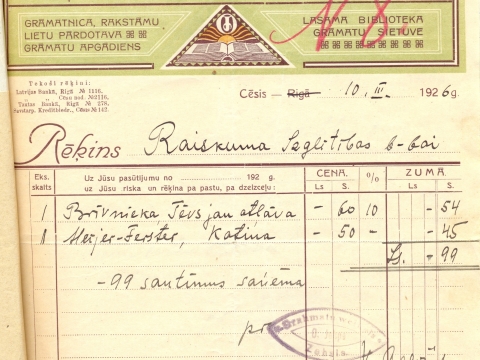 GRĀMATNĪCA, RAKSTĀMU
LIETU PĀRDOTAVA
GRĀMATU APGĀDIENS
LASĀMA BIBLIOTEKA
GRĀMATU SIETUVE
Tekoši rēķini:
Latvijas Bankā, Rīgā № 1116.
„ Cēsu nod. №2116.
Tautas Bankā, Rīgā № 278.
Savstarp. Kredītbiedr., Cēsīs № 142.
Cēsīs - Rīgā 10. III. 1926g.
Rēķins Raiskuma Izglītības b-bai
Eks. skaits
Uz Jūsu pasūtījumu no 192 g.
uz Jūsu riska un rēķina pa pastu, pa dzelzceļu:
CENA. % ZUMA.
Ls S. Ls S.
1 Brīvnieka, Tēvs jau atļāva - 60 10 - 54
1 Meijer-Ferster, Katiņa - 50 - - 45
Ls. - 99
- 99 santīmus saņēma